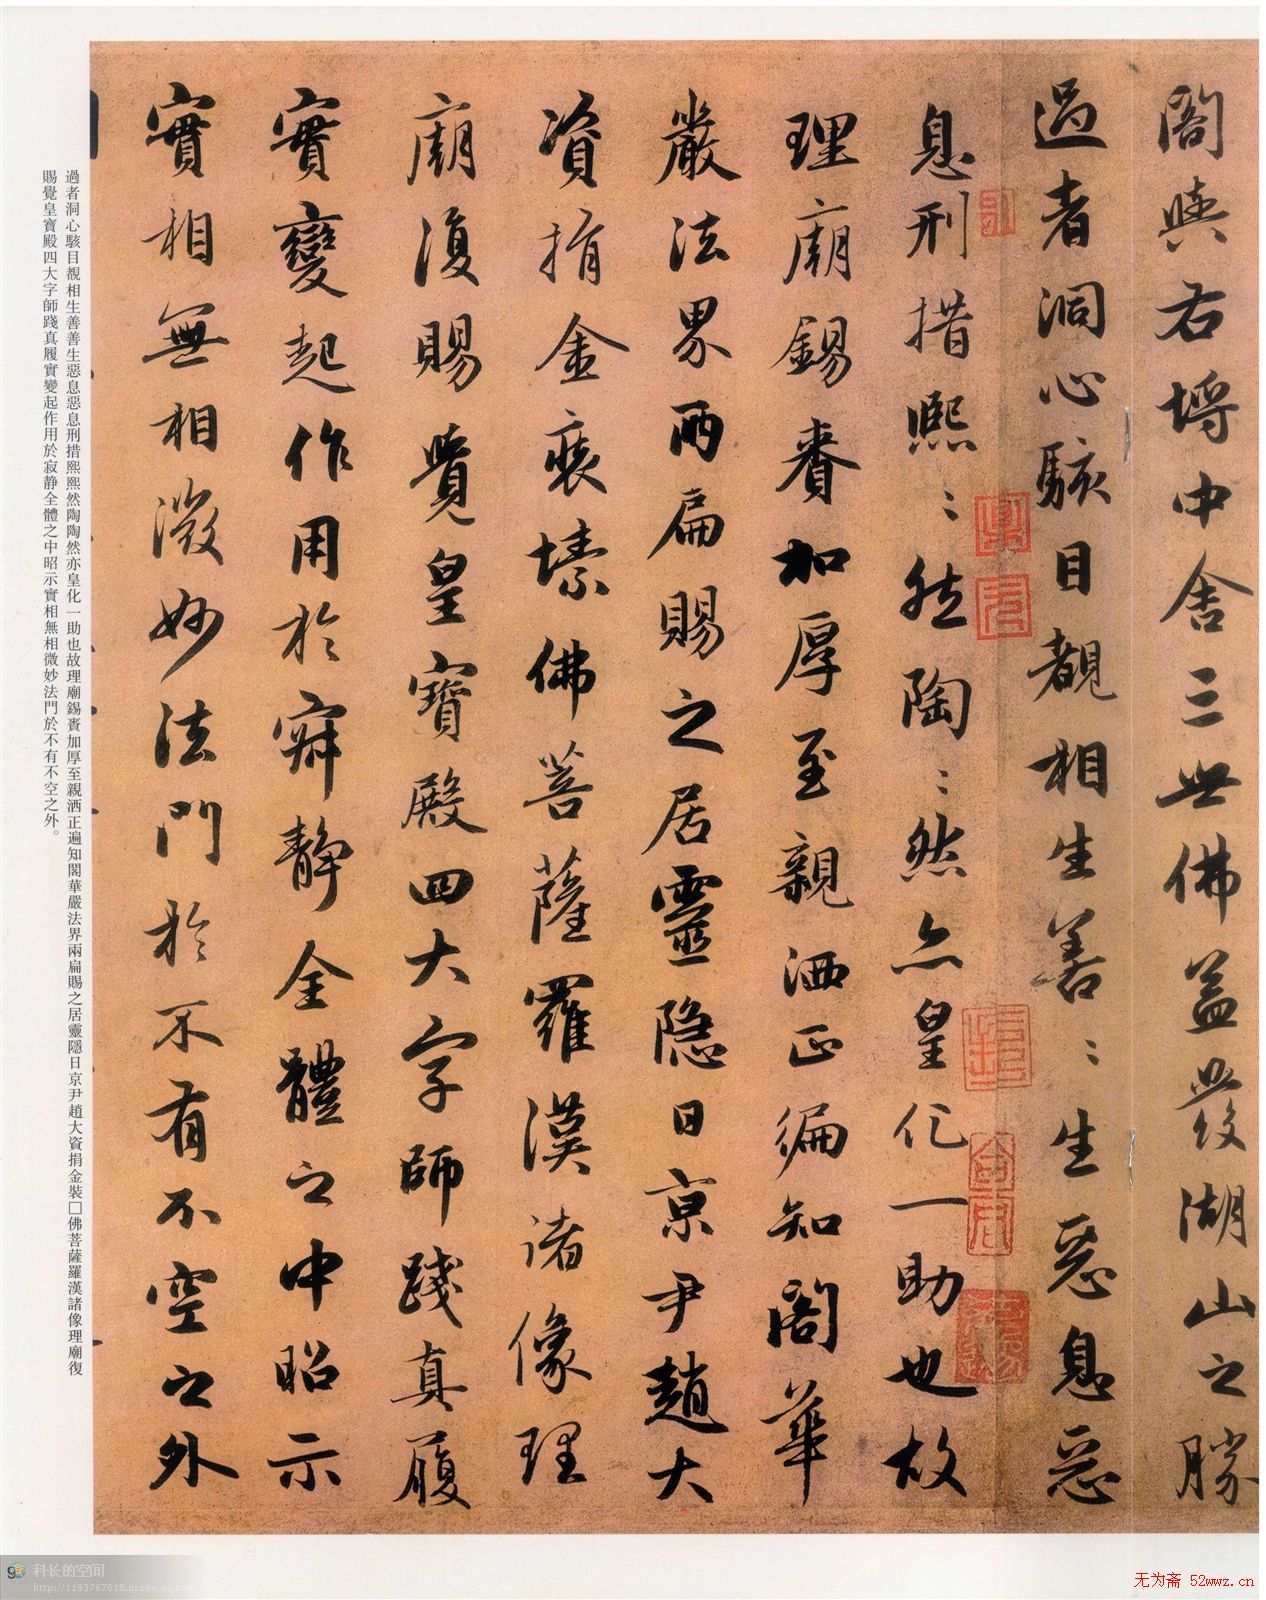 閣與右埒中舍三世佛蓋發湖山之勝
過者洞心駭目覩相生善〻生惡息惡
息刑措熙〻然陶〻然亦皇化一助也故
理廟錫賚加厚至親洒正徧知閣華
嚴法界兩扁賜之居靈隐日京尹趙大
資捐金裝塐佛菩薩羅漢諸像理
廟復賜覺皇寶殿四大字師踐真履
實變起作用於寂靜全體之中昭示
實相無相微妙法門於不有不空之外
過者洞心駭目覩相生善善生惡息惡息刑措熙熙然陶陶然亦皇化一助也故理廟錫賚加厚至親洒正遍知閣華嚴法界兩扁賜之居靈隱日京尹趙大資捐金裝□佛菩薩羅漢諸像理廟復
賜覺皇寶殿四大字師踐真履實變起作用於寂静全體之中昭示實相無相微妙法門於不有不空之外。
科长的空间
http://1193767618.qzone.qq.com
无为斋 52wwz.cn